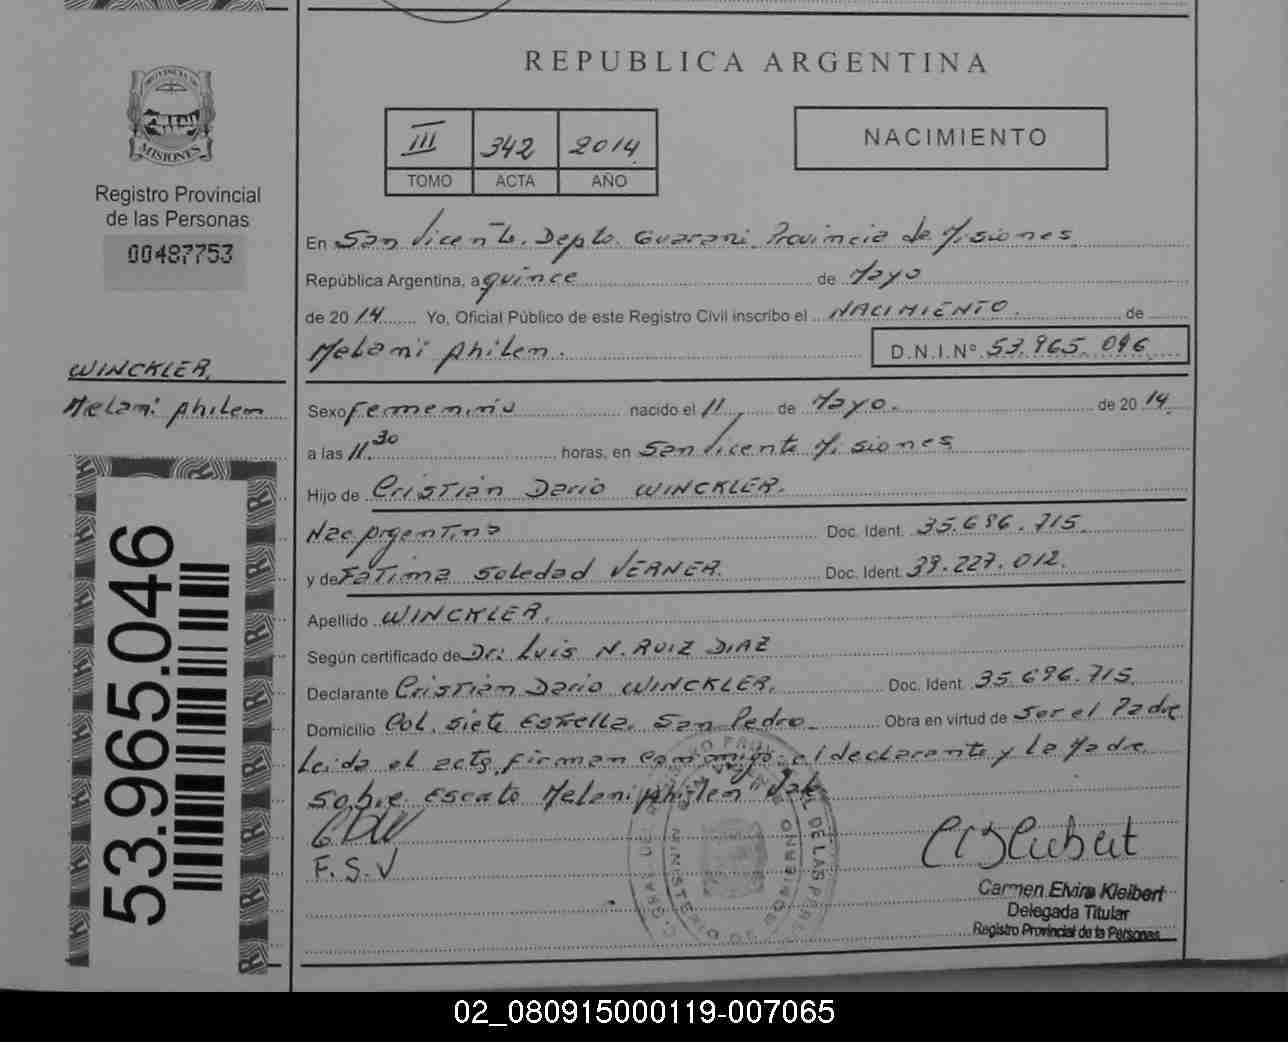 REPUBLICA ARGENTINA
PROVINCIA DE
MISIONES
Registro Provincial
de las Personas
00487753
III 342 2014
TOMO ACTA AÑO
NACIMIENTO
En San Vicente. Depto. Guarani. Provincia de Misiones
República Argentina, a quince de Mayo
de 2014 Yo, Oficial Público de este Registro Civil inscribo el NACIMIENTO. de
Melani Ahilen. D.N.I.Nº 53.965.046
WINCKLER.
Melani Ahilem
Sexo Femenino nacido el 11 de Mayo. de 2014
a las 11.30 horas, en San Vicente Misiones
Hijo de Cristián Dario WINCKLER.
Nac Argentina Doc. Ident. 35.696.715
y de Fatima Soledad VERNER. Doc. Ident. 39.227.012.
Apellido WINCKLER.
Según certificado de Dr: Luis N. RUIZ DIAZ
Declarante Cristián Dario WINCKLER. Doc. Ident. 35.696.715.
Domicilio Col. Siete Estrella. San Pedro Obra en virtud de ser el Padre
Leida el acta, firman conmigo el declarante y la Madre
Sobre Melani Ahilen Vale
CDW
F.S.V
Carmen Elvira Kleibert
Delegada Titular
Registro Provincial de la Personas
53.965.046
02_080915000119-007065